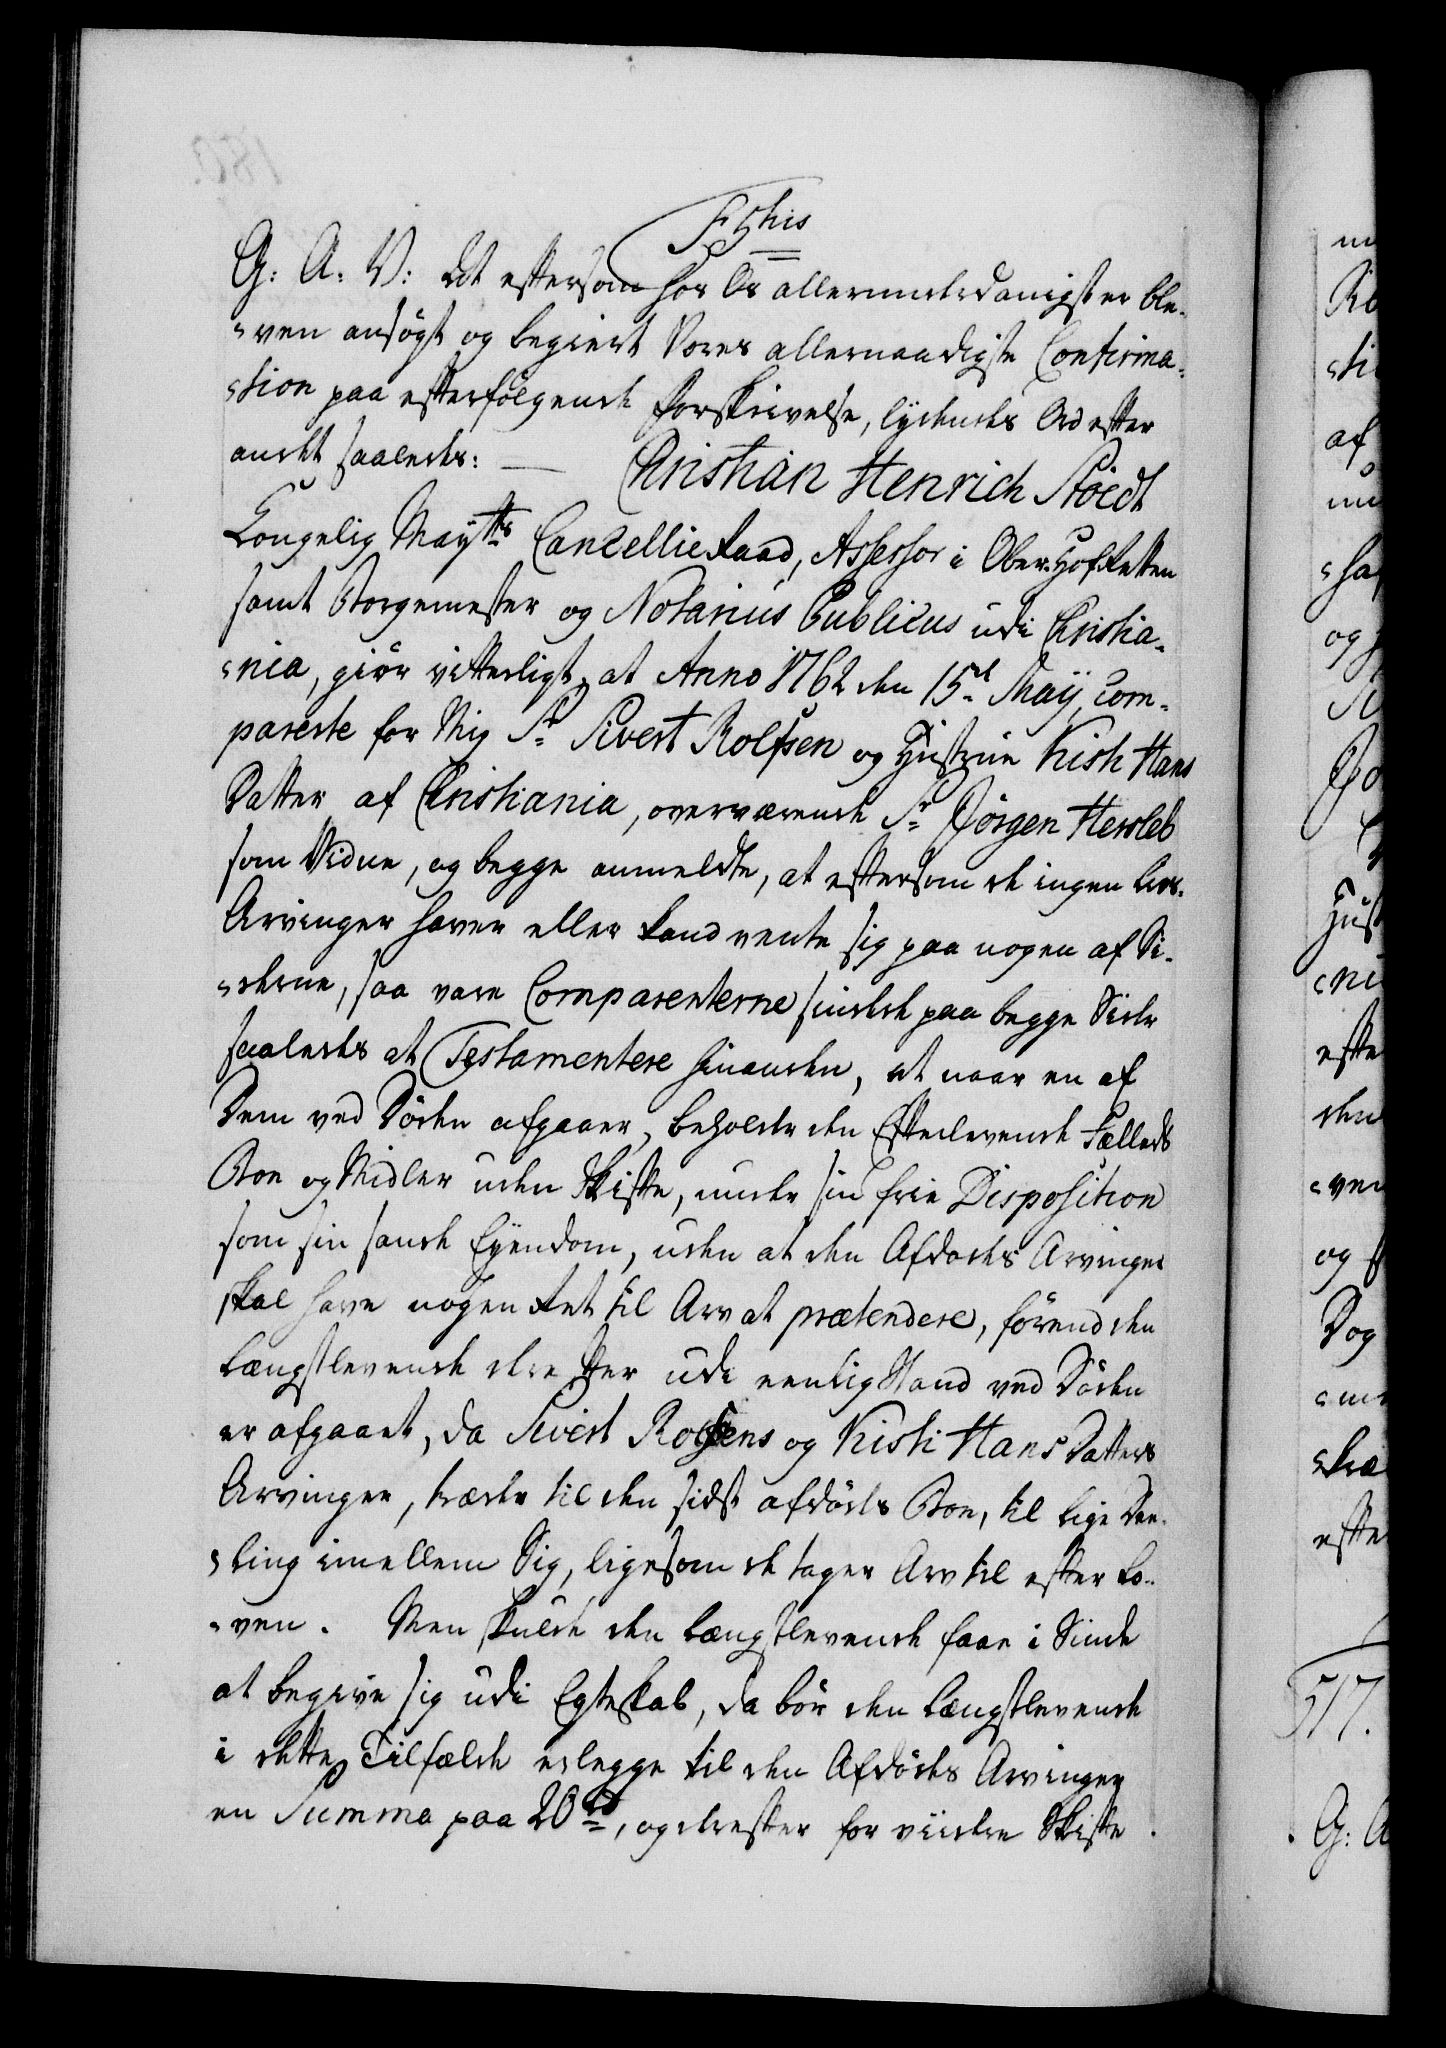 F 5this
G: A: V: At eftersom hos Os allerunderdanigst er ble-
-ven ansögt og begiert Vores allernaadigste Confirma-
-tion paa efterfölgende Forskrivelse, lydendes Ord efter
andet saaledes: — Christian Henrich Stöedt
Kongelig Mayts Cancellie Raad, Assessor i Ober-Hof-Retten
samt Borgemester og Notarius Publicus udi Christia-
-nia, giör vitterligt, at Anno 1762 den 15d Maÿ, Com-
parerte for Mig Sr Sivert Rolfsen og Hustrue Kisti Hans
Datter af Christiania, overværende Sr Jörgen Hersleb
som Vidne, og begge anmeldte, at eftersom de ingen Livs-
Arvinger haver eller kand vente sig paa nogen af Si-
-derne, saa vare Comparenterne sindede paa begge Sider
saaledes at Testamentere hinanden, at naar en af
Dem ved Döden afgaaer, beholder den Efterlevende Fælleds
Boe og Midler uden Skifte, under sin frie Disposition
som sin sande Eyendom, uden at den Afdödes Arvinger
skal have nogen Ret til Arv at prætendere, förend den
Længstlevende derefter udi eenlig Stand ved Döden
er afgaaet, da Sivert Rolfsens og Kisti Hans Datters
Arvinger, træder til den sidst afdödes Boe, til lige Dee-
-ling imellem Sig, ligesom de tager Arv til efter Lo-
-ven. Men skulde den Længstlevende faae i Sinde
at begive sig udi Egteskab, da bör den Længstlevende
i dette Tilfælde erlegge til den Afdödes Arvinger
en Summa paa 20 rd, og derefter for viidere Skifte